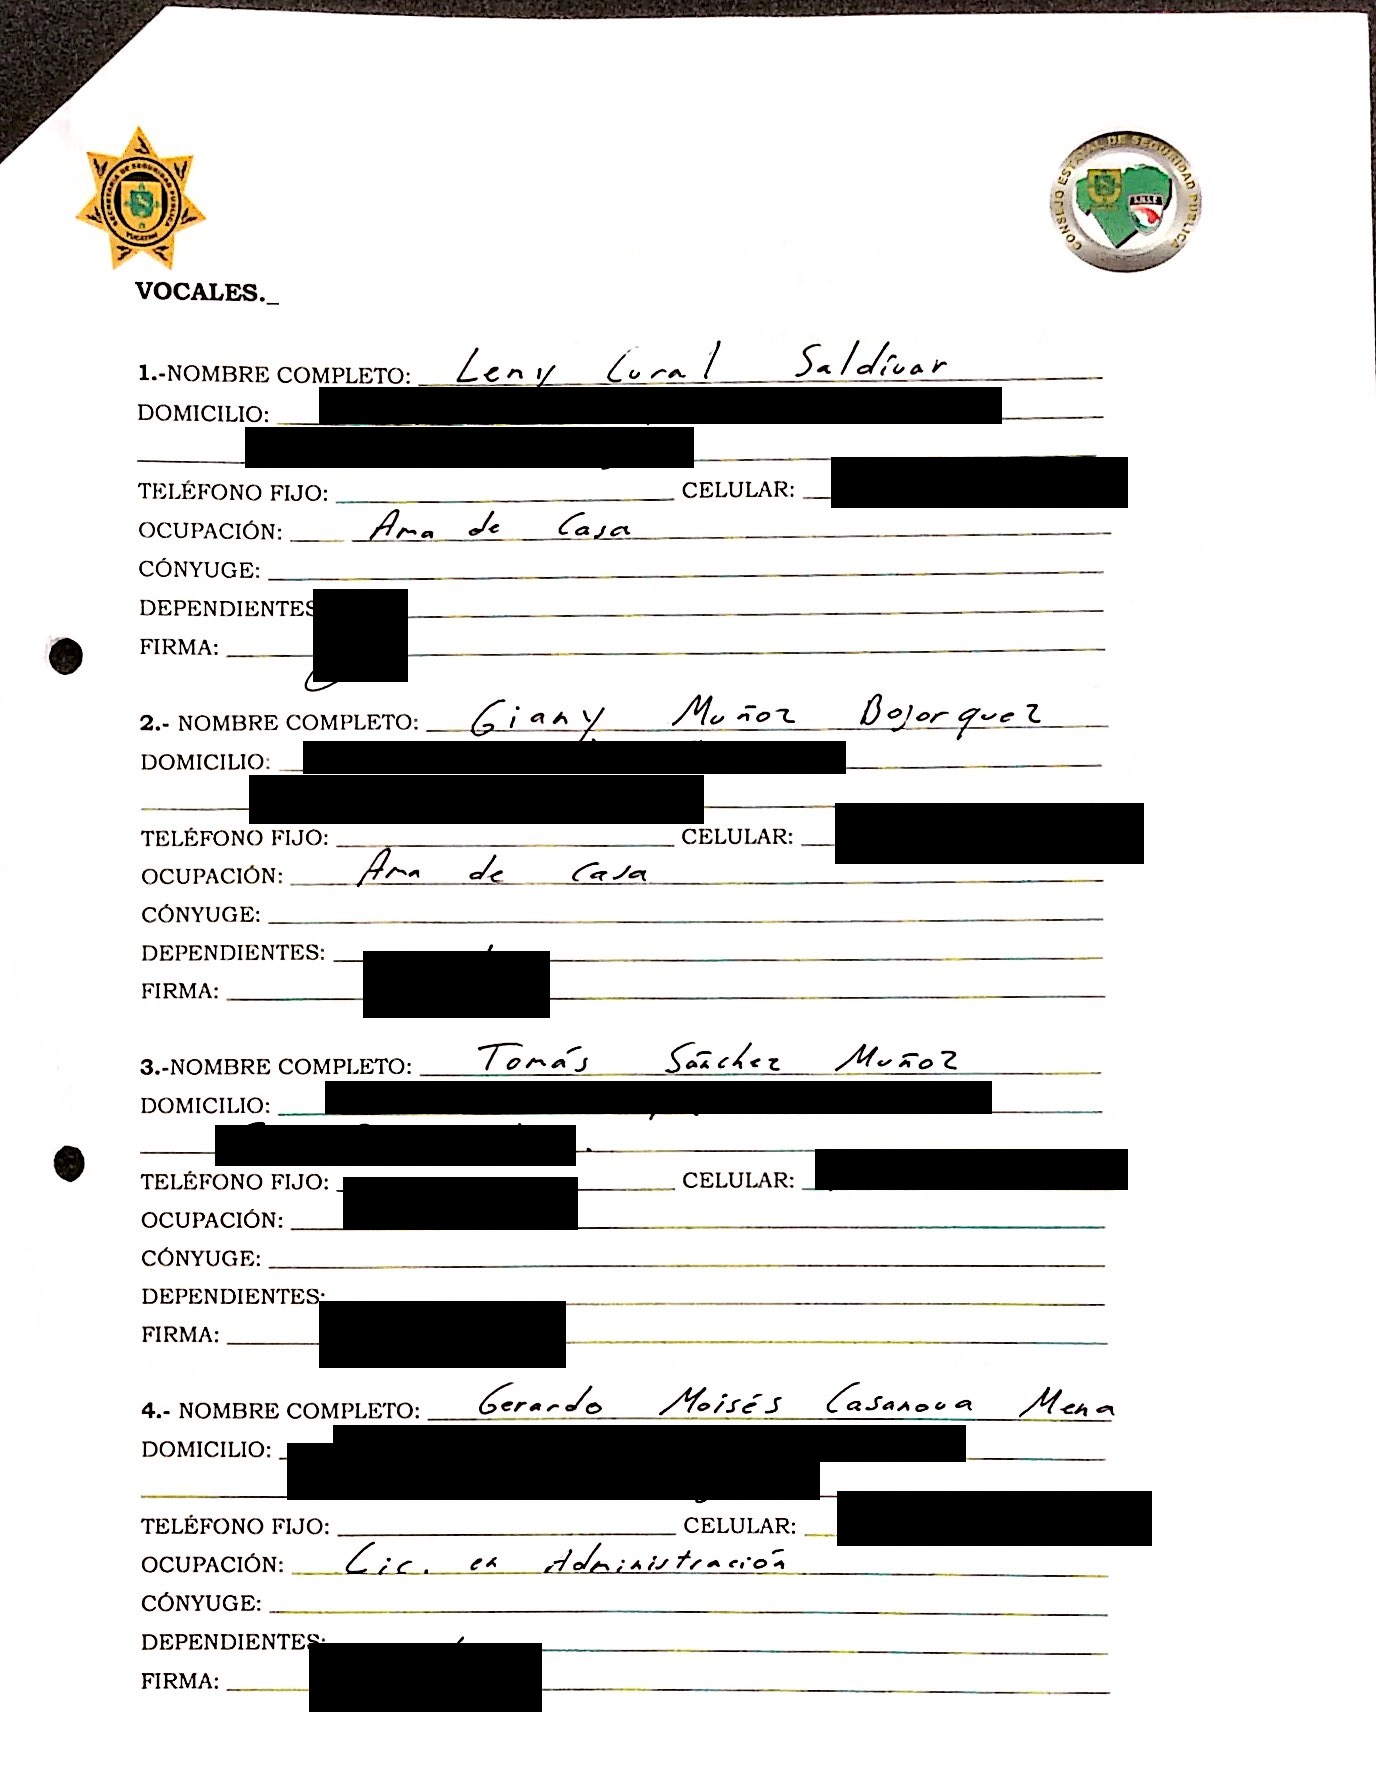 SECRETARIA DE SEGURIDAD PUBLICA
YUCATAN
CONSEJO ESTATAL DE SEGURIDAD PUBLICA
VOCALES._
1.-NOMBRE COMPLETO: Leny Cural Saldívar
DOMICILIO:
TELÉFONO FIJO: CELULAR:
OCUPACIÓN: Ama de Casa
CÓNYUGE:
DEPENDIENTES
FIRMA:
2.- NOMBRE COMPLETO: Giany Muñoz Bojorquez
DOMICILIO:
TELÉFONO FIJO: CELULAR:
OCUPACIÓN: Ama de Casa
CÓNYUGE:
DEPENDIENTES:
FIRMA:
3.-NOMBRE COMPLETO: Tomás Sánchez Muñoz
DOMICILIO:
TELÉFONO FIJO: CELULAR:
OCUPACIÓN:
CÓNYUGE:
DEPENDIENTES:
FIRMA:
4.- NOMBRE COMPLETO: Gerardo Moisés Casanova Mena
DOMICILIO:
TELÉFONO FIJO: CELULAR:
OCUPACIÓN: Lic. en Administración
CÓNYUGE:
DEPENDIENTES:
FIRMA: